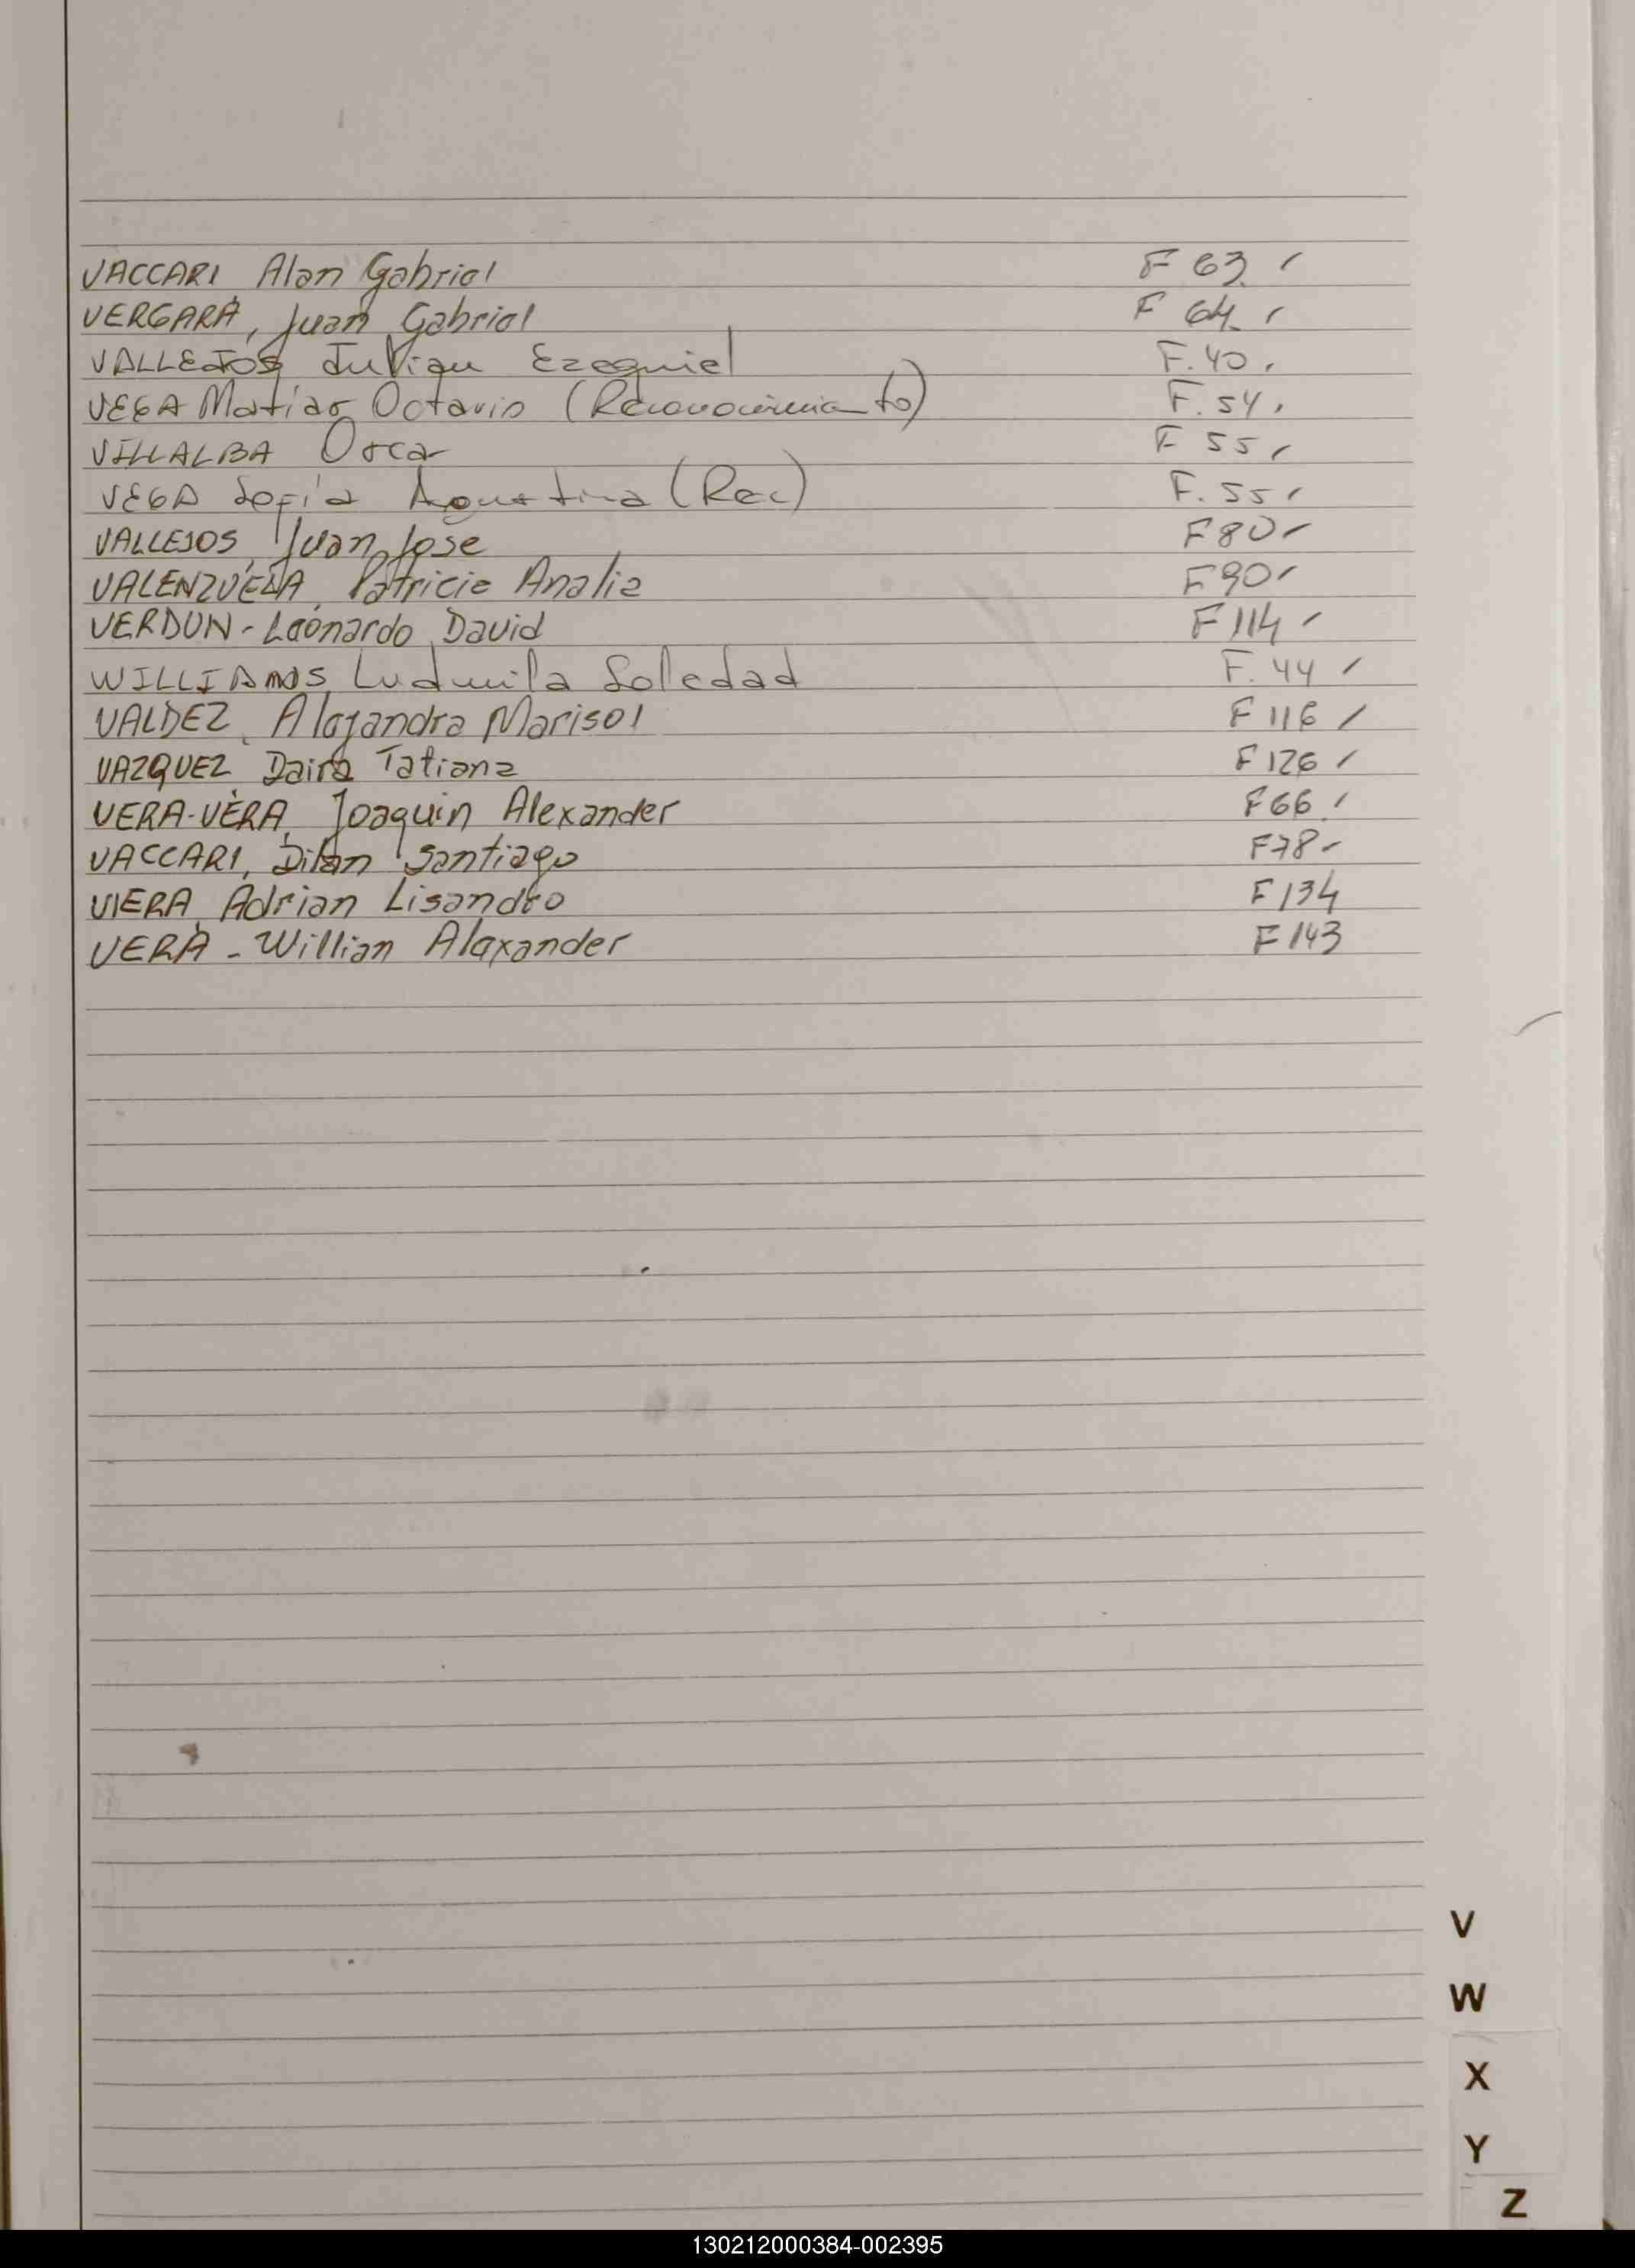 VACCARI Alan Gabriel F 63
VERGARA, Juan Gabriel F 64
VALLEJOS Julian Ezequiel F. 40
VEGA Matías Octavio (Reconocimiento) F. 54
VILLALBA Oscar F 55
VEGA Sofía Agustina (Rec) F. 55
VALLEJOS, Juan Jose F 80
VALENZUELA, Patricia Analia F 90
VERDUN - Leonardo David F 114
WILLIAMS, Ludmila Soledad F. 44
VALDEZ, Alejandra Marisol F 116
VAZQUEZ Daira Tatiana F 126
VERA-VERA, Joaquin Alexander F 66
VACCARI, Dilan Santiago F 78
VIERA, Adrian Lisandro F 134
VERA - Willian Alexander F 143
V
W
X
Y
Z
130212000384-002395